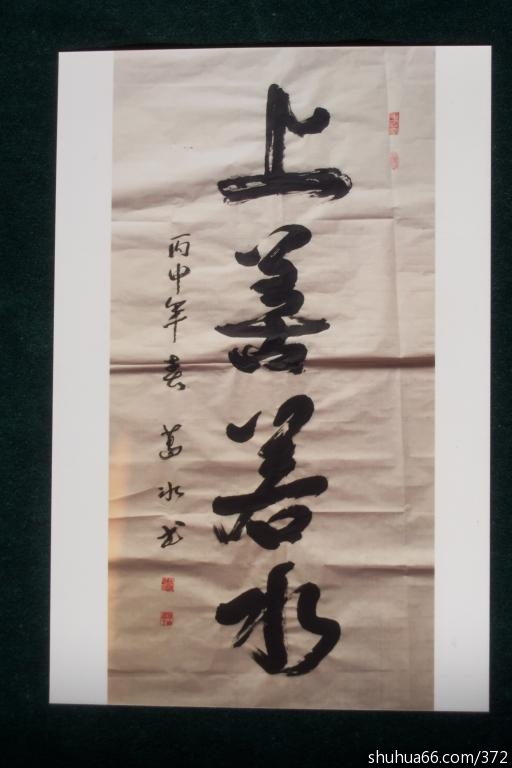 上善若水
丙申年春 葛冰书
shuhua66.com/372